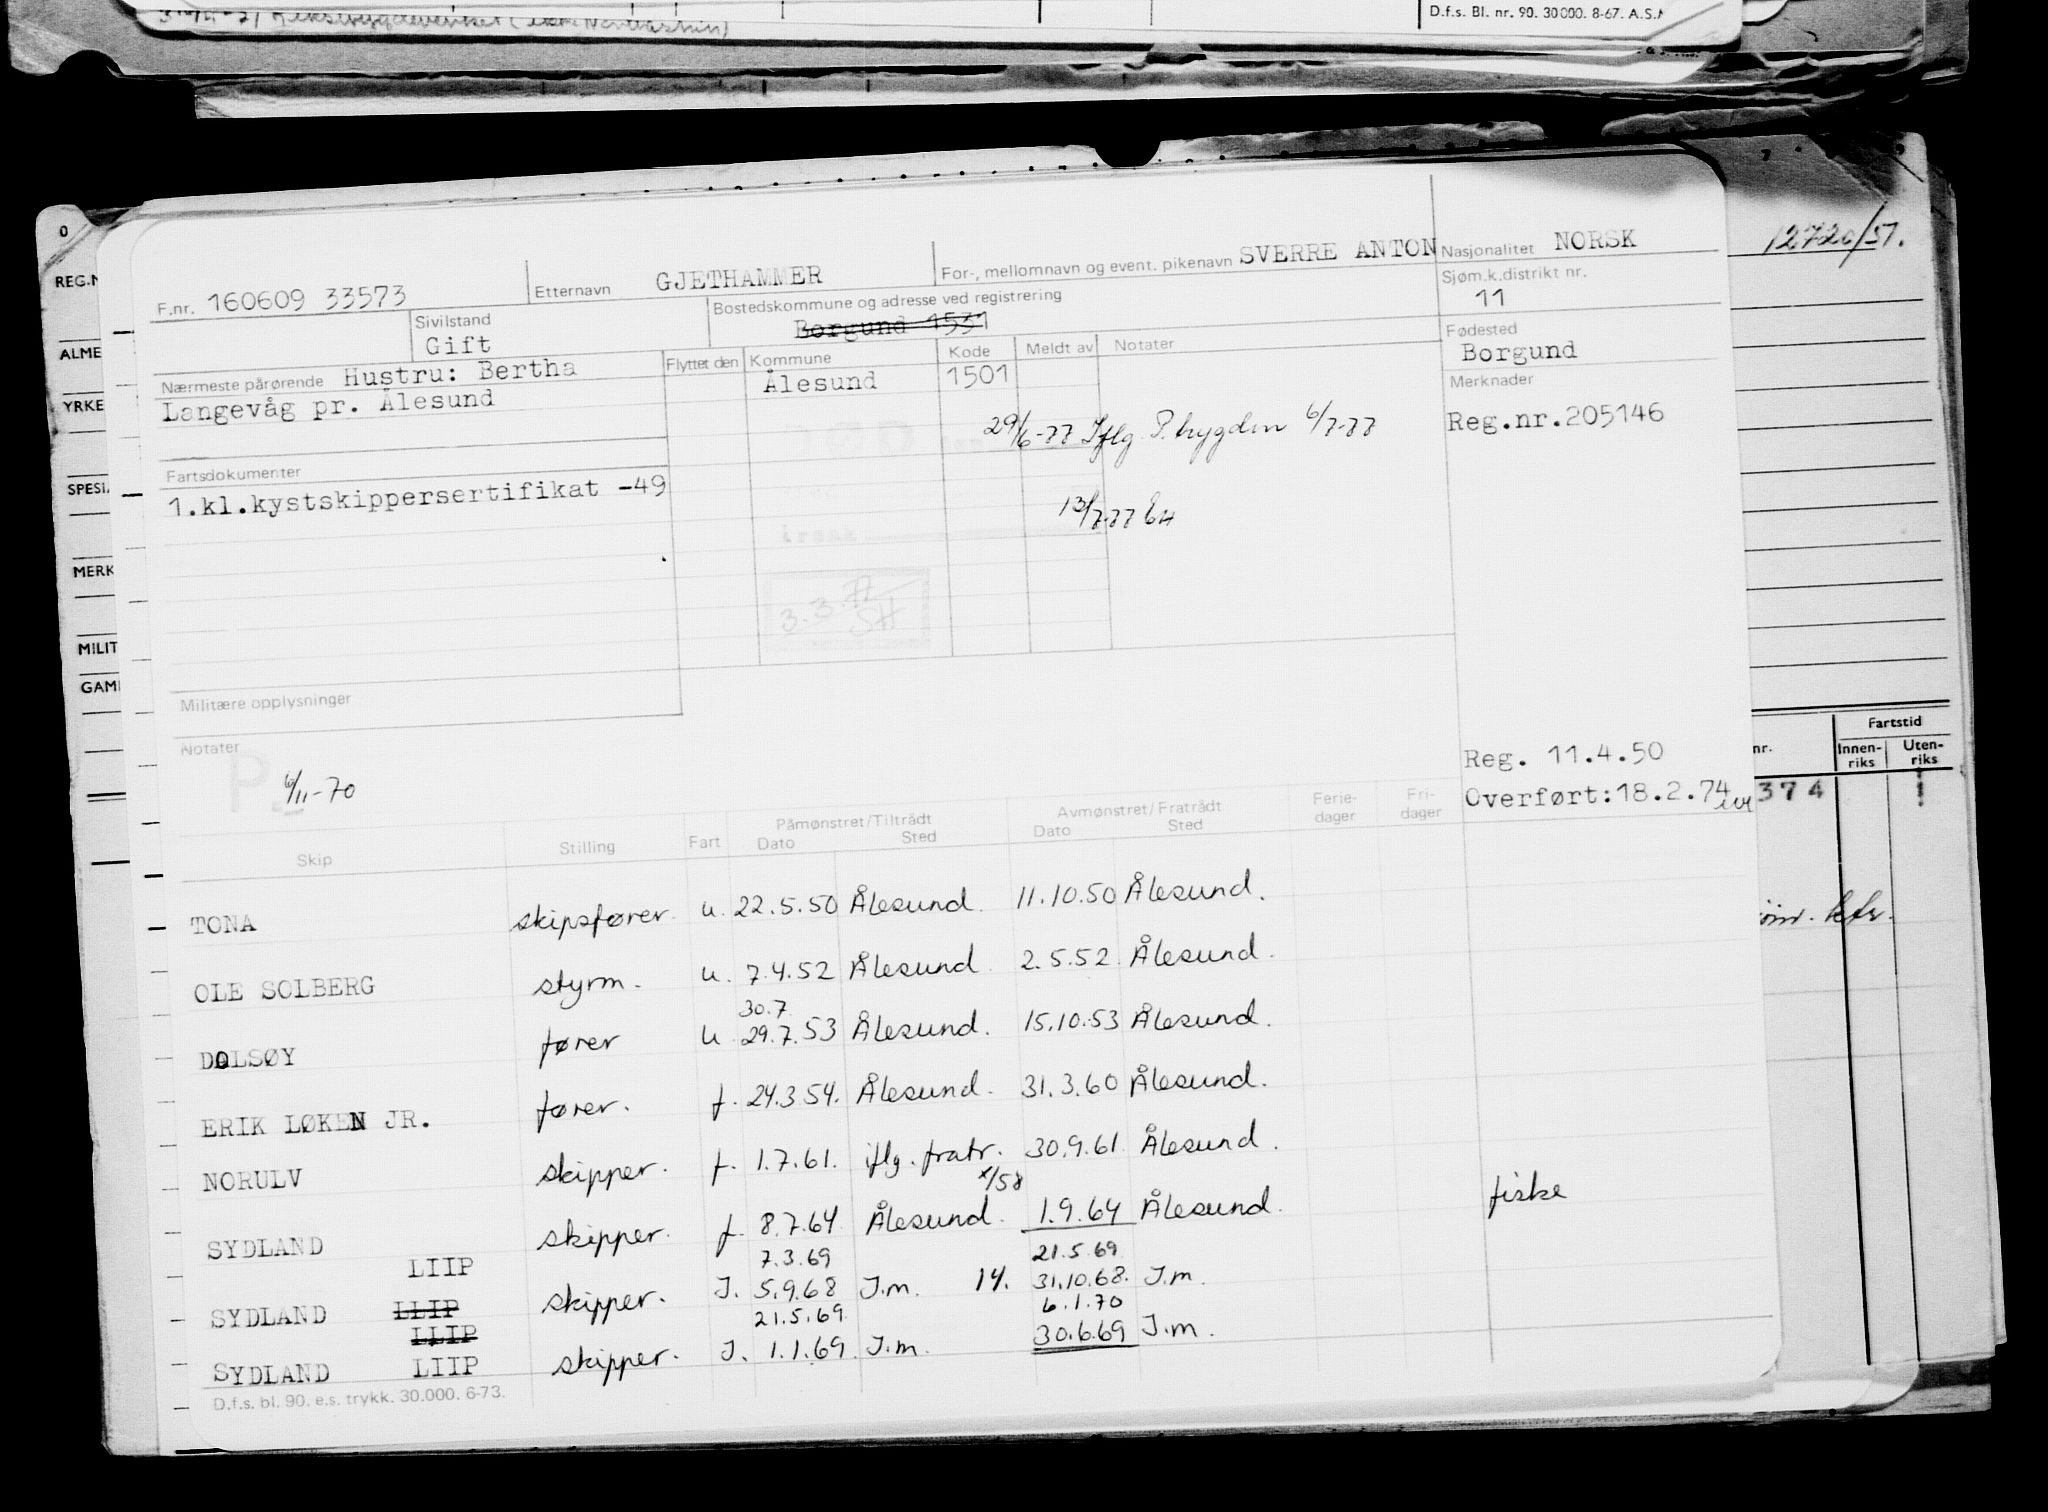 D.f.s. Bl. nr. 90. 30000. 8-67. A.S.
12720/51.
REG.N
ALME
YRKE
SPESI
MERK
MILIT
GAM
F.nr. 160609 33573 Etternavn GJETHAMMER For-, mellomnavn og event. pikenavn SVERRE ANTON Nasjonalitet NORSK
Sivilstand Gift Bostedskommune og adresse ved registrering Borgund 1531 Sjøm.k.distrikt nr. 11
Nærmeste pårørende Hustru: Bertha Flyttet den Kommune Kode Meldt av Notater Fødested Borgund
Langevåg pr. Ålesund Ålesund 1501 Merknader
29/6-77 Iflg. 6/7-77 Reg.nr.205146
Fartsdokumenter
1.kl.kystskippersertifikat -49
13/7-77
3.3.77 SH
Militære opplysninger
Notater
P. 6/11-70
Reg. 11.4.50
Overført: 18.2.74
nr. Fartstid
Innen-riks Uten-riks
374 1
Skip Stilling Fart Påmønstret/Tiltrådt Dato Sted Avmønstret/Fratrådt Dato Sted Ferie-dager Fri-dager
TONA skipsfører. u. 22.5.50 Ålesund. 11.10.50 Ålesund.
OLE SOLBERG styrm. u. 7.4.52 Ålesund 2.5.52. Ålesund.
30.7
DOLSØY fører u 29.7.53 Ålesund. 15.10.53 Ålesund.
ERIK LØKEN JR. fører. f. 24.3.54. Ålesund. 31.3.60 Ålesund.
NORULV skipper. f. 1.7.61. iflg. fratr. 30.9.61. Ålesund.
x/58
SYDLAND skipper. f. 8.7.64. Ålesund. 1.9.64 Ålesund. fiske
LIIP 7.3.69 21.5.69
SYDLAND LLIP skipper. I. 5.9.68 I.m. 14. 31.10.68. I.m.
LLIP 21.5.69 6.1.70
SYDLAND LIIP skipper. I. 1.1.69. I.m. 30.6.69 I.m.
D.f.s. bl. 90. e.s. trykk. 30.000. 6-73.